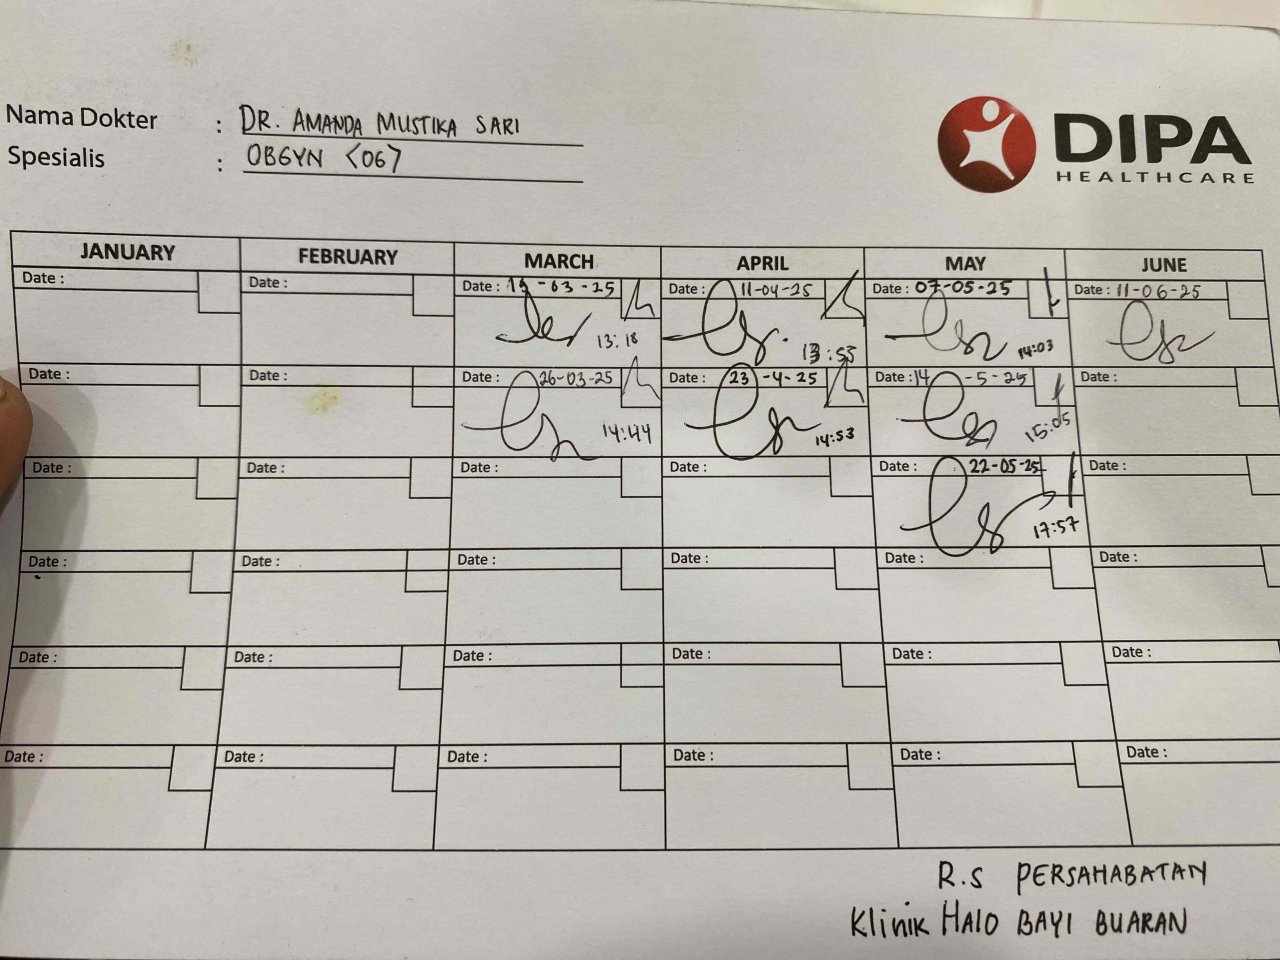 Nama Dokter : DR. AMANDA MUSTIKA SARI
Spesialis : OBGYN <06>
DIPA
HEALTHCARE
JANUARY FEBRUARY MARCH APRIL MAY JUNE
Date : Date : Date : -03-25 Date : 11-04-25 Date : 07-05-25 Date : 11-06-25
13:18 13:53 14:03
Date : Date : Date : 26-03-25 Date : 23-4-25 Date : 14-5-25 Date :
14:44 14:53 15:05
Date : Date : Date : Date : Date : 22-05-25 Date :
17:57
Date : Date : Date : Date : Date : Date :
Date : Date : Date : Date : Date : Date :
Date : Date : Date : Date : Date : Date :
R.S PERSAHABATAN
Klinik HALO BAYI BUARAN